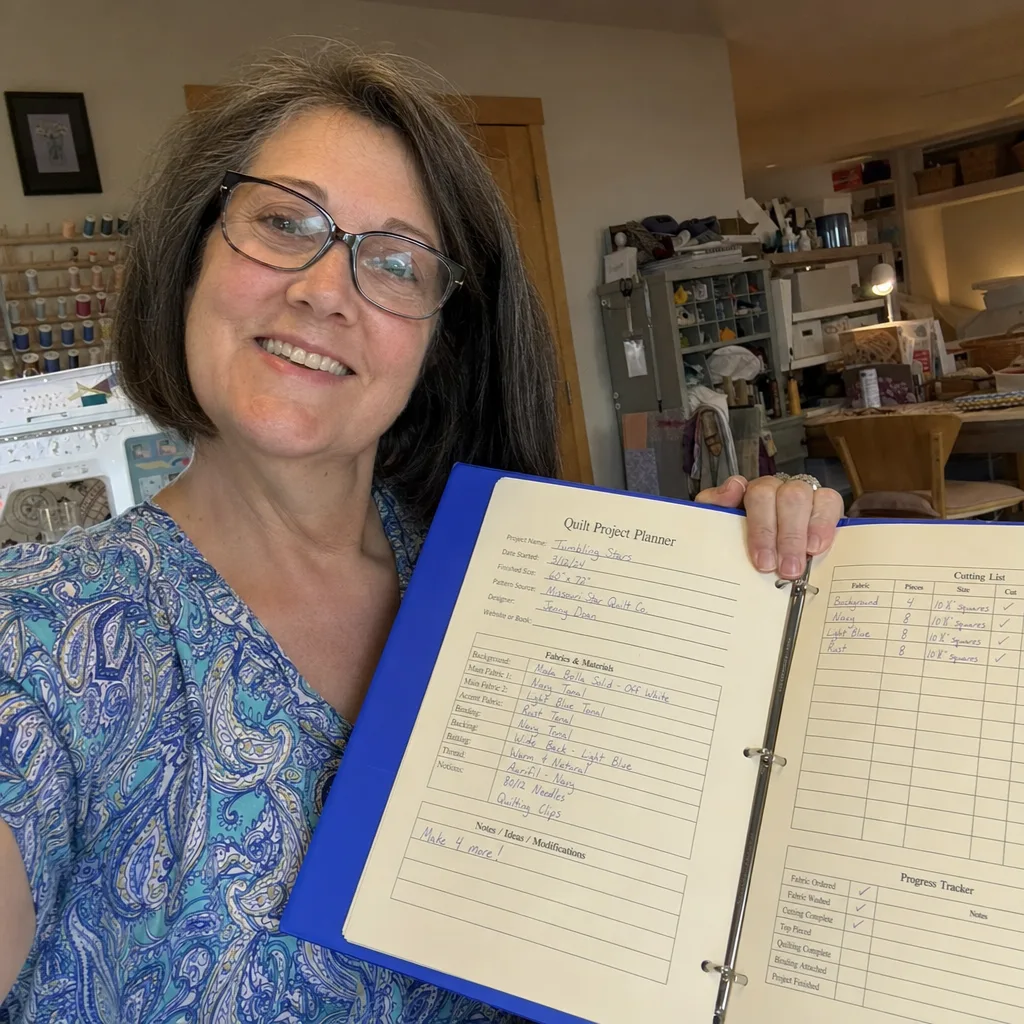 Quilt Project Planner
Project Name: Tumbling Stars
Date Started: 3/12/24
Finished Size: 60" x 72"
Pattern Source: Missouri Star Quilt Co.
Designer: Jenny Doan
Website or Book:
Fabrics & Materials
Background: Moda Bella Solid - Off White
Main Fabric 1: Navy Tonal
Main Fabric 2: Light Blue Tonal
Accent Fabric: Rust Tonal
Binding: Navy Tonal
Backing: Wide Back - Light Blue
Batting: Warm & Natural
Thread: Aurifil - Navy
Notions: 80/12 Needles
Quilting Clips
Notes / Ideas / Modifications
Make 4 more!
Cutting List
Fabric Pieces Size Cut
Background 4 squares ✓
Navy 8 squares ✓
Light Blue 8 squares ✓
Rust 8 squares ✓
Progress Tracker
Notes
Fabric Ordered ✓
Fabric Washed ✓
Cutting Complete ✓
Top Pieced
Quilting Complete
Binding Attached
Project Finished